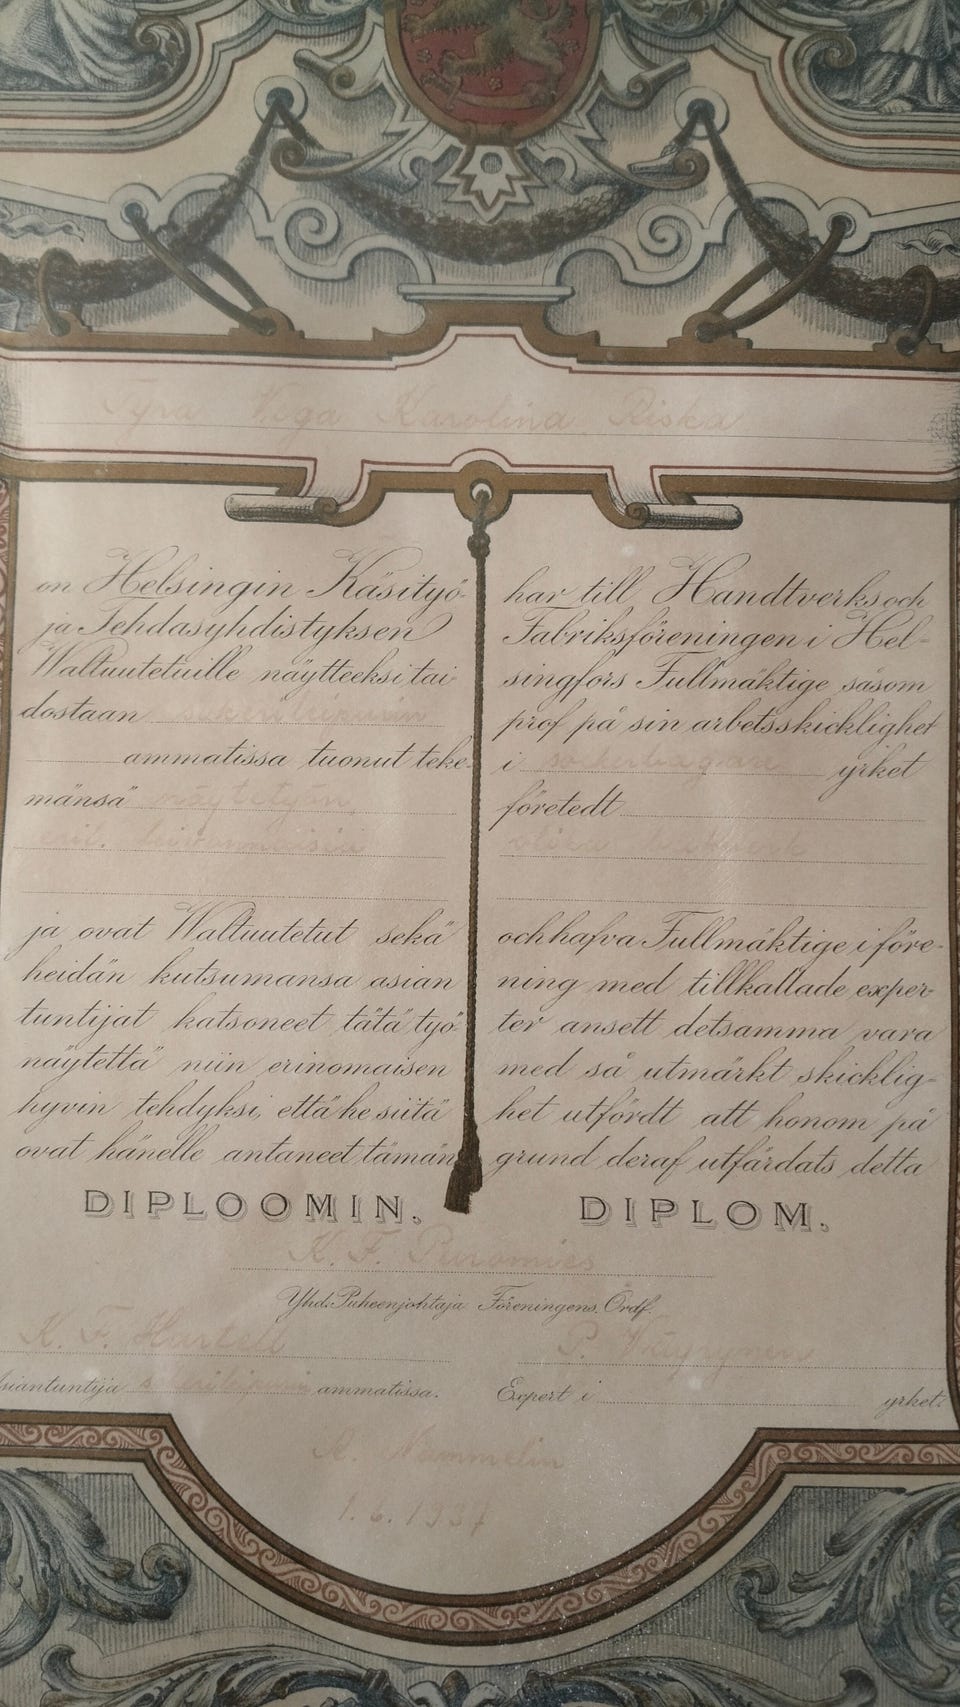 Tyra Vega Karolina Riska
on Helsingin Käsityö-
ja Tehdasyhdistyksen
Waltuutetuille näytteeksi tai-
dostaan sokerileipurin
ammatissa tuonut teke-
mänsä näytetyön
eril. leivonnaisia
ja ovat Waltuutetut sekä
heidän kutsumansa asian
tuntijat katsoneet tätä työ-
näytettä niin erinomaisen
hyvin tehdyksi, että he siitä
ovat hänelle antaneet tämän
DIPLOOMIN.
har till Handtverks och
Fabriksföreningen i Hel-
singfors Fullmäktige såsom
prof på sin arbetsskicklighet
i sockerbagare yrket
företedt
olika bakverk
och hafva Fullmäktige i före-
ning med tillkallade exper-
ter ansett detsamma vara
med så utmärkt skicklig-
het utfördt att honom på
grund deraf utfärdats detta
DIPLOM.
K. F. Puromies
Yhd. Puheenjohtaja Föreningens Ordf.
K. F. Hartell P. Väyrynen
siantuntija sokerileipuri ammatissa. Expert i yrket.
A. Nummelin
1.6.1937